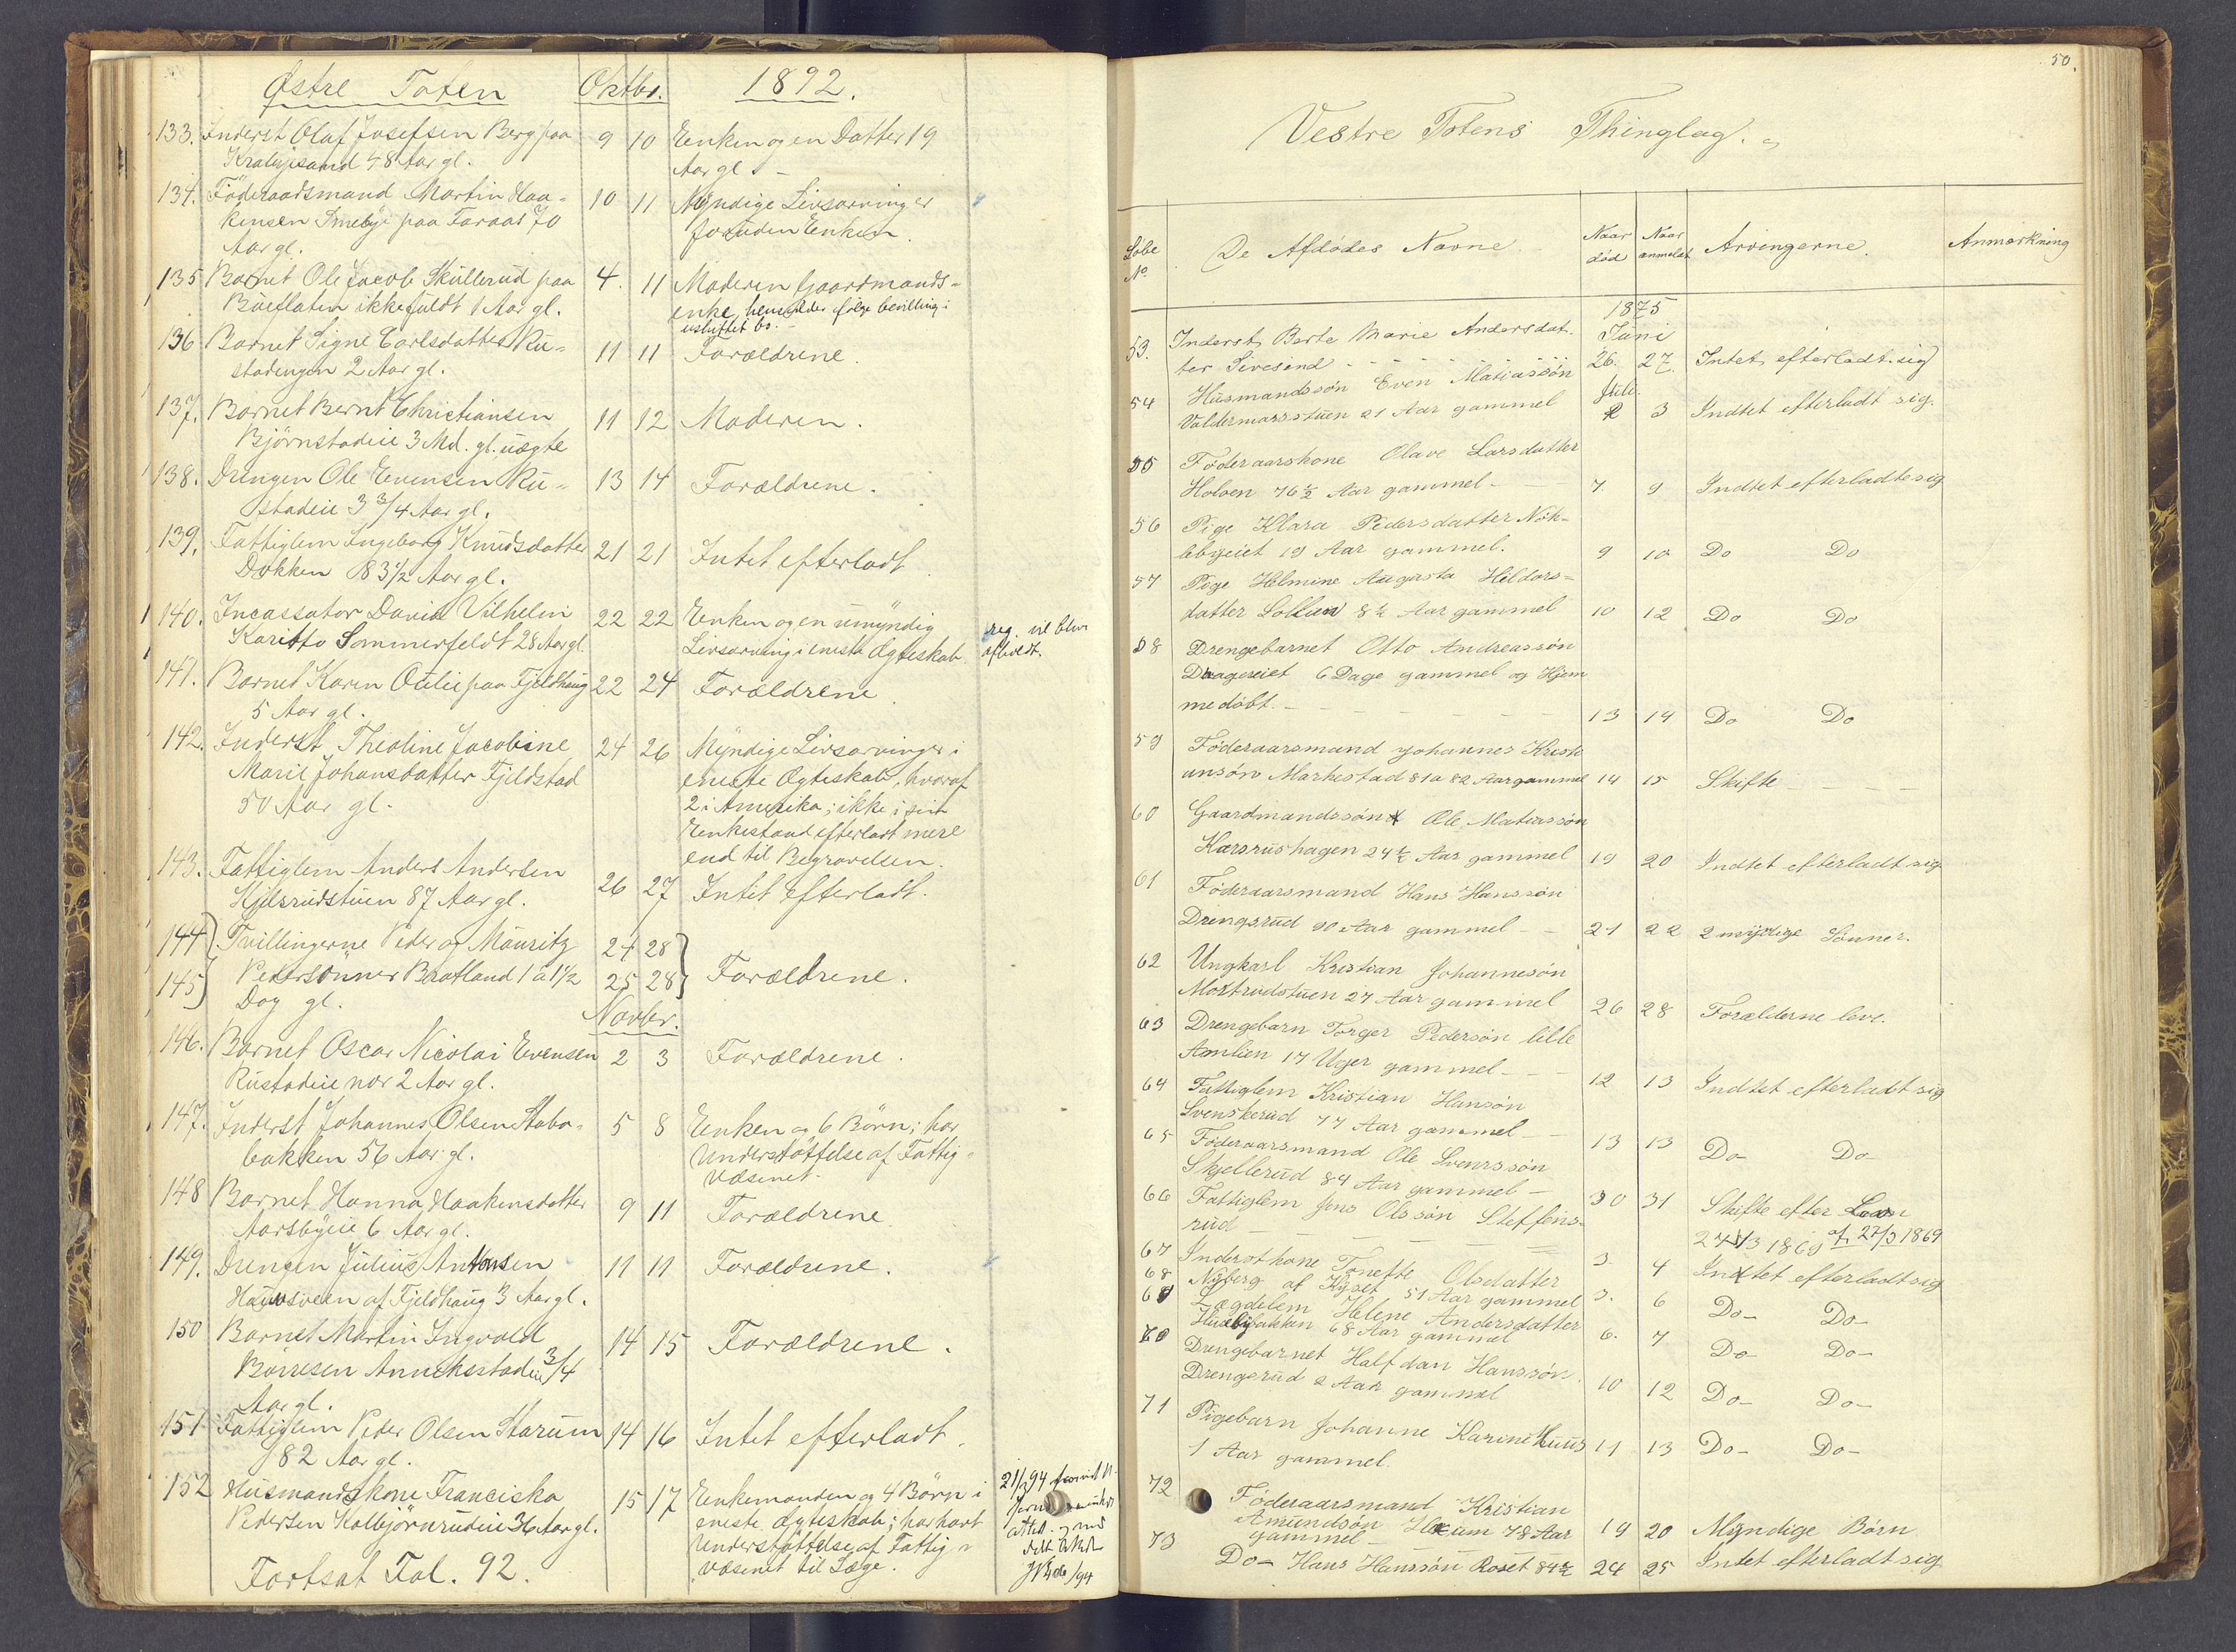 Østre Toten Oktbr. 1892.
133. Inderst Olaf Josefsen Berg paa 9 10 Enken og en Datter 19
48 Aar gl. Aar gl. -
134. Föderaadsmand Martin Haa- 10 11 Myndige Livsarvinger
kensen Smeby paa 70 foruden Enken
Aar gl.
135 Barnet Ole Jacob Skullerud paa 4. 11 Moderen Gaardmands-
ikke fuldt 1 Aar gl. enke, hensidder ifølge bevilling i
uskiftet bo.
136 Barnet Signe Carlsdatter Ru- 11 11 Forældrene.
stadengen 2 Aar gl.
137. Barnet Bernt Christiansen 11 12 Moderen.
Björnstadeie 3 Md. gl. uægte
138. Drengen Ole Evensen Ru- 13 14 Forældrene.
stadeie 3 3/4 Aar gl.
139. Fattiglem Ingeborg Knudsdatter 21 21 Intet efterladt
Dokken 83 1/2 Aar gl.
140. Incassator David Vilhelm 22 22 Enken og en umyndig
Sommerfeldt 28 Aar gl. Livsarving i eneste Ægteskab. reg. vil blive
afholdt.
141. Barnet Karen Oulie paa Fjeldhaug 22 24 Forældrene.
5 Aar gl.
142. Inderst Theoline Jacobine 24 26 Myndige Livsarvinger i
Marie Johansdatter Fjeldstad eneste Ægteskab, hvoraf
50 Aar gl. 2 i Amerika; ikke i sin
Enkestand efterladt mere
end til Begravelsen.
143. Fattiglem Anders Andersen 26 27 Intet efterladt.
Kjelsrudstuen 87 Aar gl.
144 Tvillingerne Peder og Mauritz 24 28
145 Pedersönner Bratland 1 a 1 1/2 25 28 Forældrene.
Dag gl.
Novbr.
146. Barnet Oscar Nicolai Evensen 2 3 Forældrene.
Rustadeie nær 2 Aar gl.
147. Inderst Johannes Olsen Stabo- 5 8 Enken og 6 Börn; har
bakken 56 Aar gl. Understöttelse af Fattig-
væsenet.
148 Barnet Hanna Haakensdatter 9 11 Forældrene
Aarsbyeie 6 Aar gl.
149. Drengen Julius Antonsen 11 11 Forældrene.
af Fjeldhaug 3 Aar gl.
150 Barnet Martin Ingvald 14 15 Forældrene.
Börresen Annekstadeie 3/4
Aar gl.
151 Fattiglem Peder Olsen Starum 14 16 Intet efterladt.
82 Aar gl.
152 Husmandskone Franciska 15 17 Enkemanden og 4 Börn i 21/3 94
Pedersen Kolbjörnrudeie 36 Aar gl. eneste Ægteskab; har havt
Understöttelse af Fattig-
væsenet til Læge.
Fortsat Fol. 92.
50.
Vestre Totens Thinglag.
Løbe No. De Afdødes Navne. Naar død Naar anmeldt Arvingerne. Anmærkning
1875
Juni
53. Inderst Berte Marie Andersdat-
ter Sivesind 26. 27. Intet efterladt sig
54 Husmandssøn Even Matiassøn Juli.
Valdemarsstuen 21 Aar gammel 2 3 Indtet efterladt sig.
55 Føderaarskone Olave Larsdatter
Holoen 76 1/2 Aar gammel 7 9 Indtet efterladt sig
56 Pige Klara Pedersdatter Nök-
lebyeiet 19 Aar gammel. 9 10 Do Do
57 Pige Helmine Augusta Hildors-
datter 8 1/2 Aar gammel 10 12 Do Do
58 Drengebarnet Otto Andreassøn
6 Dage gammel og Hjem
medøbt. 13 14 Do Do
59 Føderaarsmand Johannes Kristi
ansøn Markestad 81 a 82 Aar gammel 14 15 Skifte
60 Gaardmandssøn Ole Matiassøn
24 1/2 Aar gammel 19 20 Indtet efterladt sig
61 Føderaarsmand Hans Hanssøn
Drengsrud 90 Aar gammel 21 22 2 mydige Sønner.
62 Ungkarl Kristian Johannesøn
27 Aar gammel 26 28 Forælderne leve.
63 Drengebarn Torger Pedersøn lille
Amlien 17 Uger gammel 12 13 Indtet efterladt sig
64 Fattiglem Kristian Hansøn
Svenskerud 77 Aar gammel 13 13 Do Do
65 Føderaarsmand Ole Svenssøn
Skjellerud 84 Aar gammel 30 31 Skifte efter
27/3 1869 af 27/3 1869
66 Fattiglem Jens Olssøn Steffens-
rud 3. 4 Indtet efterladt sig
67 Inderstkone Tonette Olsdatter
68 Nyberg af 51 Aar gammel 3. 6 Do Do
69 Lægdelem Helene Andersdatter
68 Aar gammel 6. 7 Do Do
70 Drengebarnet Halfdan Hanssøn
Drengsrud 2 Aar gammel 10 12 Do Do
71 Pigebarn Johanne Karine Huus 11 13 Do Do
1 Aar gammel.
72 Føderaarsmand Kristian
Amundsøn 78 Aar
gammel 19 20 Myndige Børn
73 Do Hans Hanssøn Roset 84 1/2 24 25 Intet efterladt sig